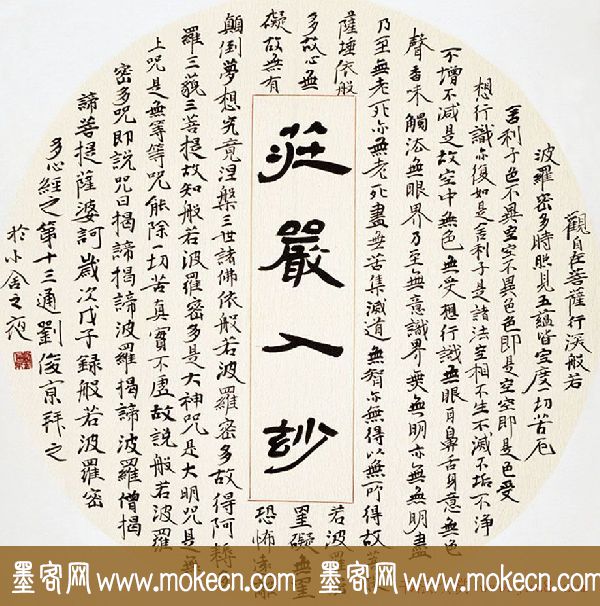 觀自在菩薩行深般若
波羅密多時照見五蘊皆空度一切苦厄
舍利子色不異空空不異色色即是空空即是色受
想行識亦復如是舍利子是諸法空相不生不滅不垢不淨
不增不減是故空中無色無受想行識無眼耳鼻舌身意無色
聲香味觸法無眼界乃至無意識界無無明亦無無明盡
乃至無老死亦無老死盡無苦集滅道無智亦無得以無所得故
薩埵依般
若波羅
多故心無
罣礙無罣
礙故無有
恐怖遠離
莊嚴入玅
顛倒夢想究竟涅槃三世諸佛依般若波羅密多故得阿耨
羅三藐三菩提故知般若波羅密多是大神咒是大明咒是無
上咒是無等等咒能除一切苦真實不虛故說般若波羅
密多咒即說咒曰揭諦揭諦波羅揭諦波羅僧揭
諦菩提薩婆訶歲次戊子録般若波羅密
多心經之第十三通劉俊京拜之
於小舍之夜
墨客网 www.mokecn.com 墨客网 www.mokecn.com